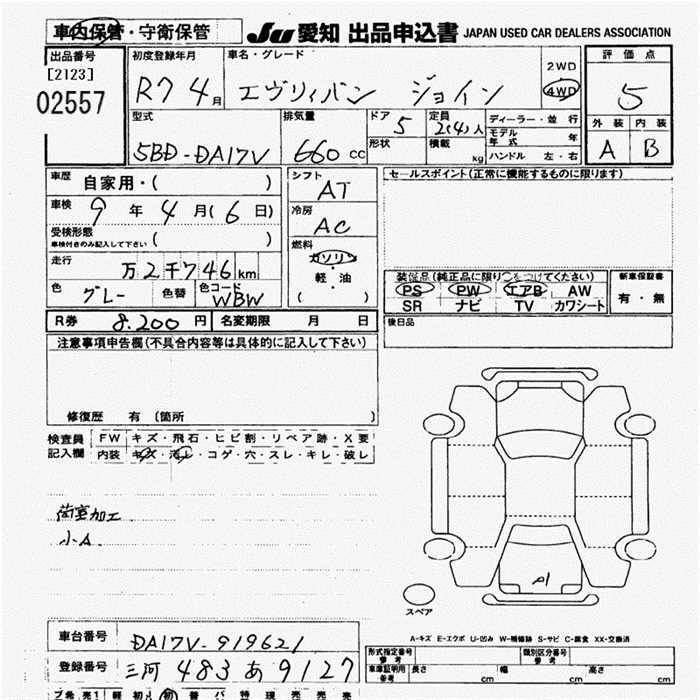 車内保管・守衛保管 JU 愛知 出品申込書 JAPAN USED CAR DEALERS ASSOCIATION
出品番号 初度登録年月 車名・グレード 2WD 評価点
[2123] R7 4月 エヴリィバン ジョイン 4WD 5
02557
型式 排気量 ドア 定員 ディーラー・並行 外装 内装
5BD-DA17V 660cc 5 2(4)人 モデル年式 年 A B
形状 積載 kg ハンドル 左・右
車歴 自家用・( ) シフト AT セールスポイント(正常に機能するものに限ります)
車検 9年4月(6日) 冷房 AC
受検形態 ( ) 燃料
車検付きのみ記入して下さい ガソリン
走行 万2千746km 軽・油 装備品(純正品に限り○をつけてください) 新車保証書
色 グレー 色替 色コード WBW ( ) PS PW エアB AW 有・無
SR ナビ TV カワシート
R券 8.200円 名変期限 月 日 後日品
注意事項申告欄(不具合内容等は具体的に記入して下さい)
修復歴 有 (箇所 )
検査員 FW キズ・飛石・ヒビ割・リペア跡・X要
記入欄 内装 キズ・汚レ・コゲ・穴・スレ・キレ・破レ
歯室加工
小A
A1
スペア
A-キズ E-エクボ U-凹み W-補修跡 S-サビ C-腐食 XX-交換済
車台番号 DA17V-919621 形式指定番号 参考 類別区分番号 参考
登録番号 三河 483 あ 9127 車庫証明用 参考 長さ cm 幅 cm 高さ cm